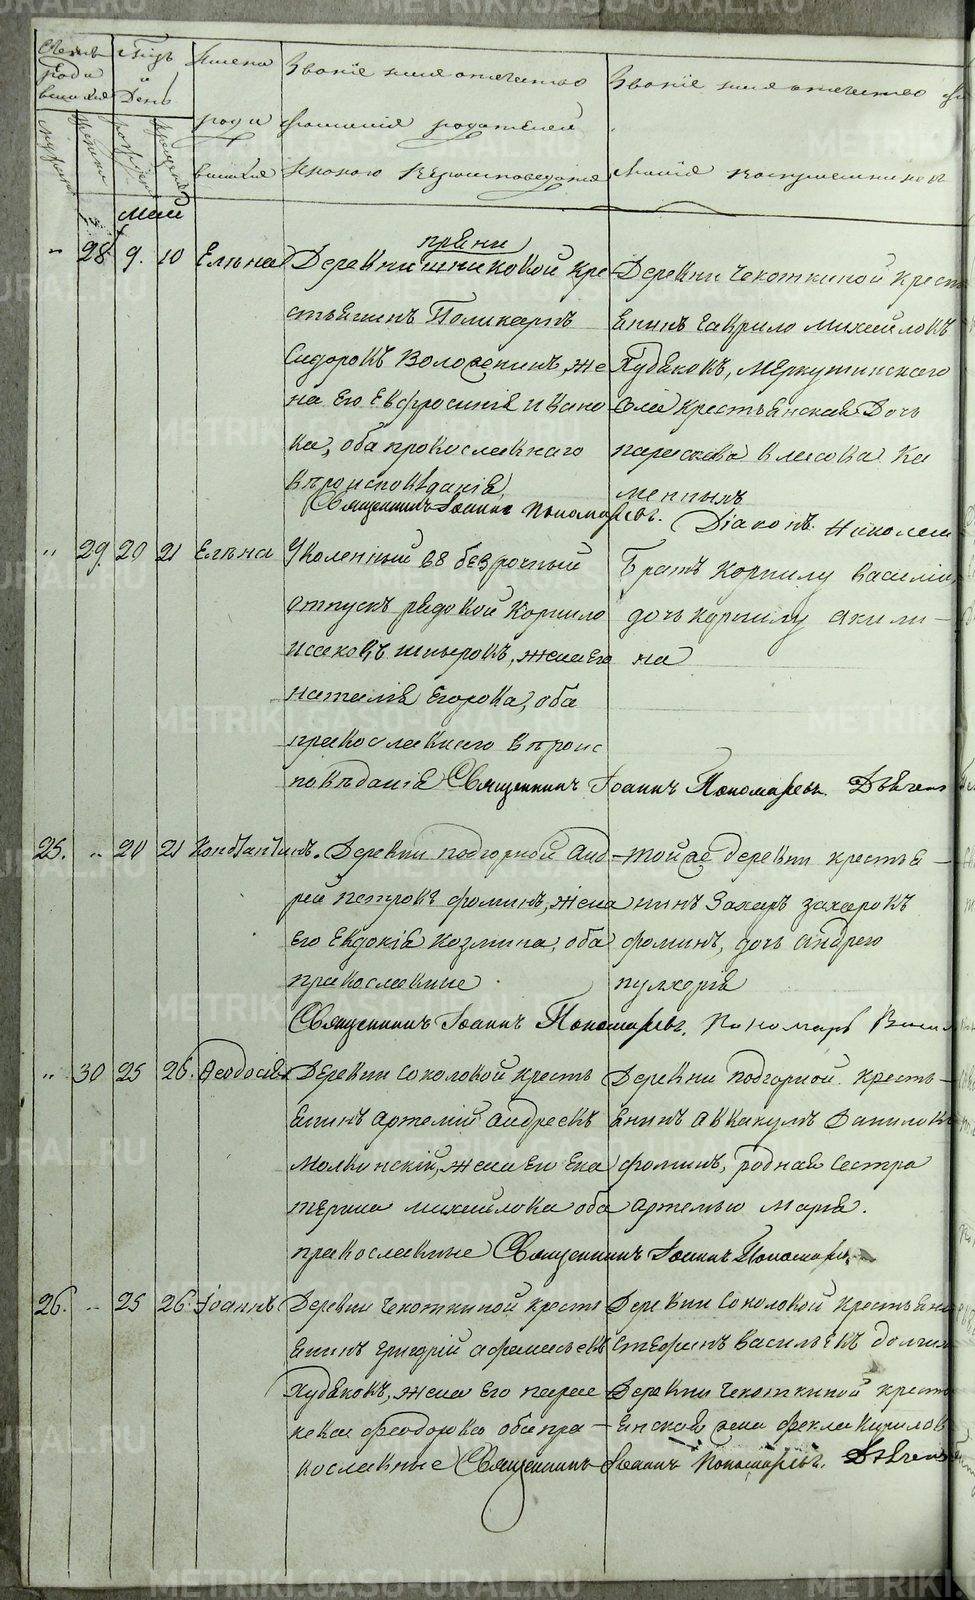 METRIKI.GASO-URAL.RU
Счетъ роди вшихся
Мѣсяцъ и День
Имена роди вшихся
Званіе имя отечество фамилія родителей и какого вѣроисповеданія
Званіе имя отечество фамилія воспріемниковъ
май
пряни
„ 28 9. 10 Елѣна Деревни шниковой кре-
стьянинъ Поликарпъ
Сидоровъ Воложенинъ, же
на Его Евфросинія Ивано
ва, оба православнаго
вѣроисповѣданія
Деревни Чекоткиной крест
янинъ Гаврило Михайловъ
Худяковъ, Меркушинскаго
села крестьянская дочь
параскева Власова Ка
менныхъ
Священникъ Іоаннъ Пономаревъ. Діаконъ Николаи
„ 29. 20 21 Елѣна Уволенный въ безрочный
отпускъ рядовой Корнило
Исаковъ, жена Его
наталія Егорова, оба
православнаго вѣроис
повѣданія Священникъ Іоаннъ Пономаревъ.
Братъ Корнилу Василіи
дочь Корнилу Акили-
на
25. „ 20 21 Константинъ. Деревни подгорной Анд
рей петровъ фоминъ, жена
Его Евдокія Козмина, оба
православные
той же деревни крестья-
нинъ Захаръ Захаровъ
фоминъ, дочь Андрею
пулхерія
Священникъ Іоаннъ Пономаревъ. Пономарь Васил
„ 30 25 26. Ѳеодосія Деревни Соколовой кресть
янинъ Артемій Андреевъ
Молвинскій, жена Его Ека
терина михайлова оба
православные Священникъ Іоаннъ Пономаревъ.
Деревни Подгорной кресть-
янинъ Аввакумъ Даниловъ
фоминъ, родная сестра
Артемью Марія.
26. „ 25 26. Іоаннъ Деревни Чекоткиной кресть
янинъ Григорій Афанасьевъ
Худяковъ, жена Его парас
кева Феодорова оба пра-
вославные Священникъ Іоаннъ Пономаревъ.
Деревни Соколовой крестьяни
Стефанъ Васильевъ
Деревни Чекоткиной кресть
янская жена Фекла Кирилов